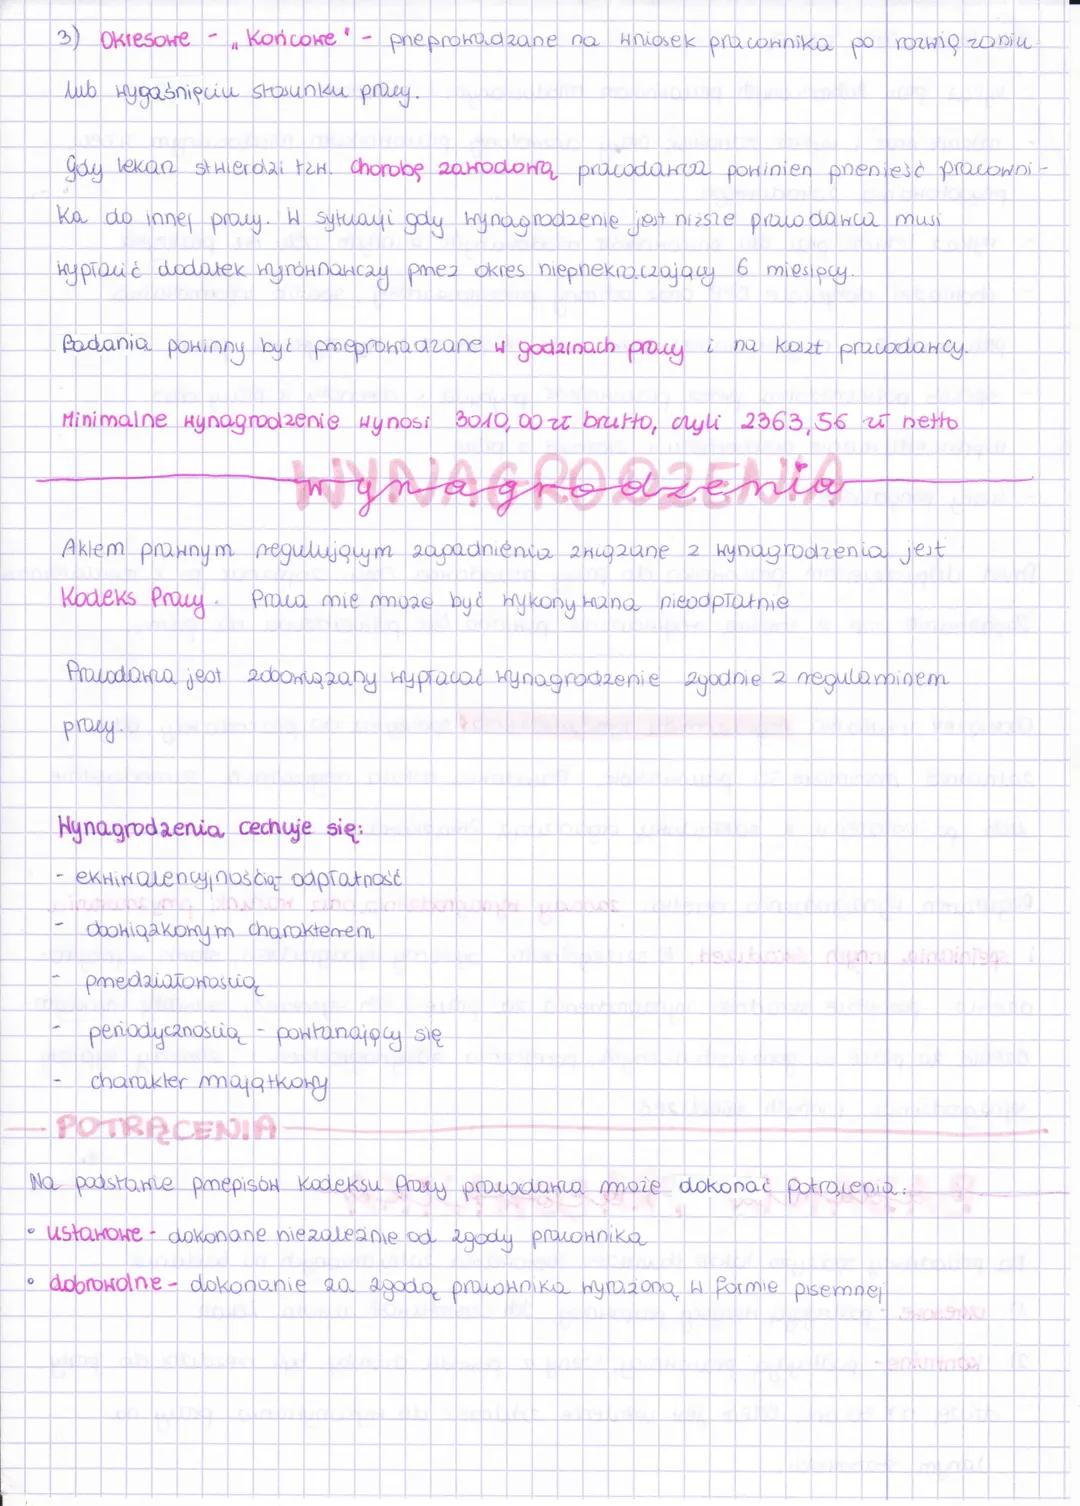 3) Okresowe - „Końcowe" - przeprowadzane na wniosek pracownika po rozwiązaniu
lub wygaśnięciu stosunku pracy.
Gdy lekarz stwierdzi tzw. chorobę zawodową pracodawca powinien przenieść pracowni-
ka do innej pracy. W sytuacji gdy wynagrodzenie jest niższe pracodawca musi
wypłacić dodatek wyrównawczy przez okres nieprzekraczający 6 miesięcy.
Badania powinny być przeprowadzane w godzinach pracy i na koszt pracodawcy.
Minimalne wynagrodzenie wynosi 3010,00 zł brutto, czyli 2363,56 zł netto
WYNAGRODZENIA
wynagrodzenia
Aktem prawnym regulującym zagadnienia związane z wynagrodzenia jest
Kodeks Pracy. Praca nie może być wykonywana nieodpłatnie
Pracodawca jest zobowiązany wypłacać wynagrodzenie zgodnie z regulaminem
pracy.
Wynagrodzenia cechuje się:
- ekwiwalencyjnością - odpłatność
- obowiązkowym charakterem
- przedziałowością
- periodycznością - powtarzający się
- charakter majątkowy
POTRĄCENIA
Na podstawie przepisów Kodeksu Pracy pracodawca może dokonać potrącenia:
• ustawowe - dokonane niezależnie od zgody pracownika
• dobrowolne - dokonanie za zgodą pracownika wyrażoną w formie pisemnej